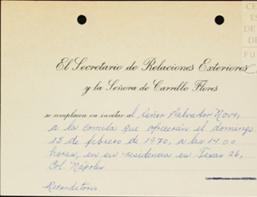 El Secretario de Relaciones Exteriores
y la Señora de Carrillo Flores
se complacen en invitar al Señor Salvador Novo,
a la comida que ofrecerán el domingo
15 de febrero de 1970, a las 14.00
horas, en su residencia en Texas 26,
Col. Nápoles